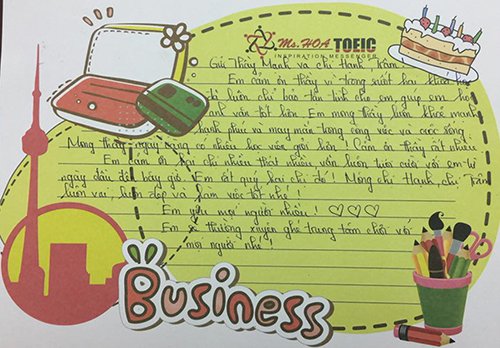 Ms. HOA TOEIC
INSPIRATION MESSENGER
Gửi Thầy Mạnh và chị Hạnh, Trâm!
Em cảm ơn thầy vì trong suốt hai khoá học
đã luôn chỉ bảo tận tình cho em, giúp em học
anh văn tốt hơn. Em mong thầy luôn khoẻ mạnh
hạnh phúc và may mắn trong công việc và cuộc sống.
Mong thầy ngày càng có nhiều học viên giỏi hơn. Cảm ơn thầy rất nhiều
Em cảm ơn hai chị nhiều thật nhiều vì luôn luôn cười với em từ
ngày đầu đến bây giờ. Em rất quý hai chị đó! Mong chị Hạnh, chị Trâm
luôn vui, luôn đẹp và làm việc tốt nhé!
Em yêu mọi người nhiều! ♡♡♡
Em sẽ thường xuyên ghé trung tâm chơi với
mọi người nhé!
Business